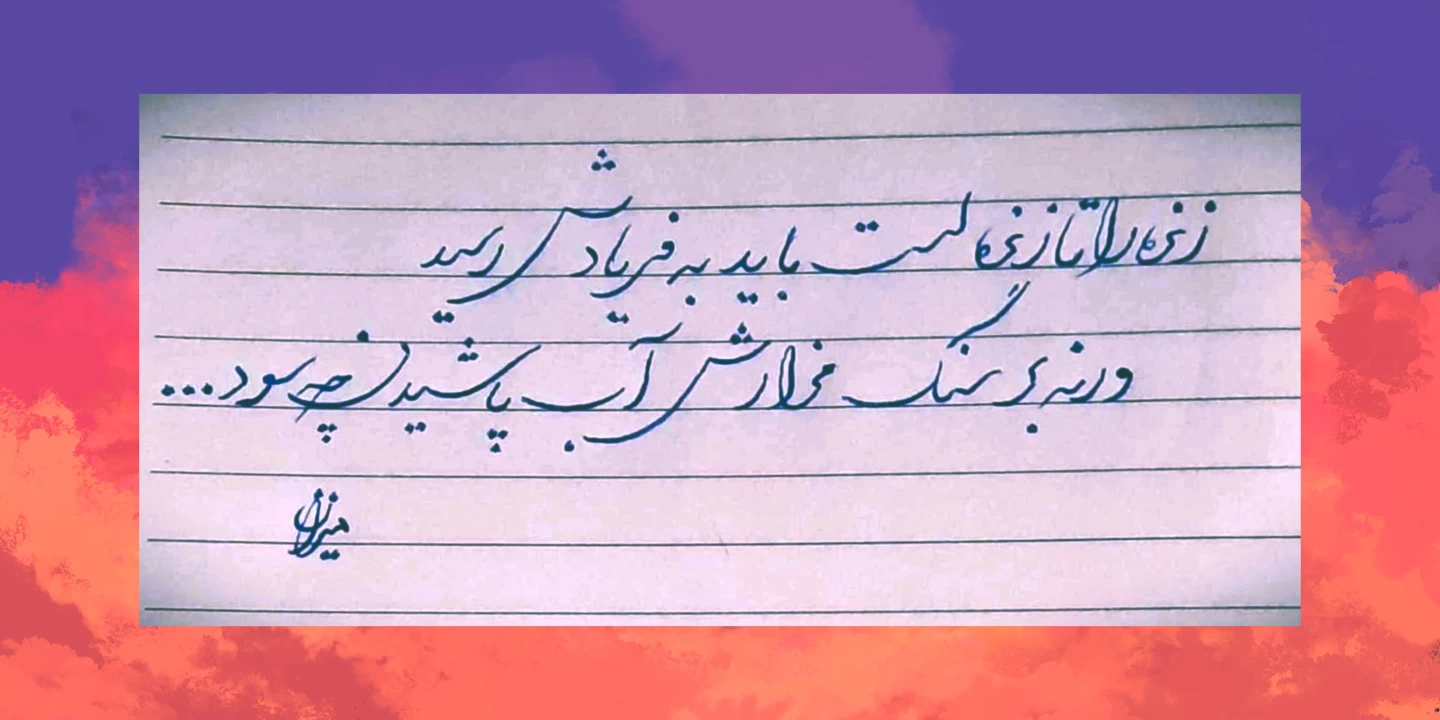 زنده را تا زنده است باید به فریادش رسید
ورنه بر سنگ مزارش آب پاشیدن چه سود...
میزان